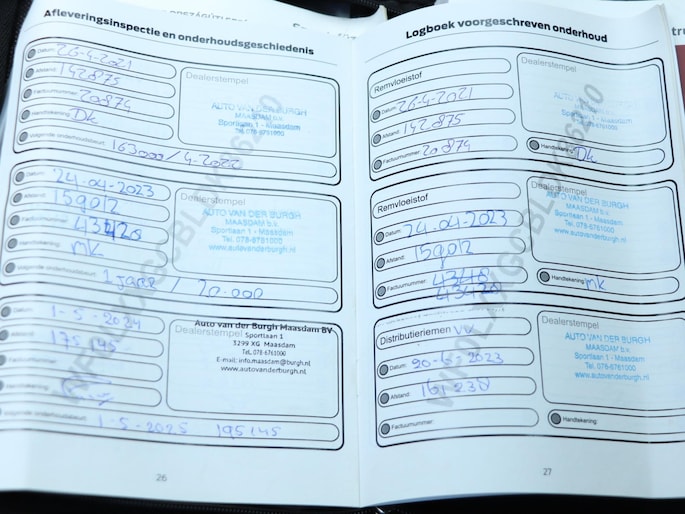 Afleveringsinspectie en onderhoudsgeschiedenis
Datum: 26-4-2021
Afstand: 142875
Factuurnummer: 20874
Handtekening: Dk
Volgende onderhoudsbeurt: 163000/4-2022
Dealerstempel
AUTO VAN DER BURGH
MAASDAM b.v.
Sportlaan 1 - Maasdam
Tel. 078-6761000
Datum: 24-04-2023
Afstand: 159012
Factuurnummer: 43420
Handtekening: mk
Volgende onderhoudsbeurt: 1 jaar / 20.000
Dealerstempel
AUTO VAN DER BURGH
MAASDAM b.v.
Sportlaan 1 - Maasdam
Tel. 078-6761000
www.autovanderburgh.nl
Datum: 1-5-2024
Afstand: 175145
Handtekening:
Volgende onderhoudsbeurt: 1-5-2025 195145
Dealerstempel
Auto van der Burgh Maasdam BV
Sportlaan 1
3299 XG Maasdam
Tel. 078-6761000
E-mail: info.maasdam@burgh.nl
www.autovanderburgh.nl
26
Logboek voorgeschreven onderhoud
Remvloeistof
Datum: 26-4-2021
Afstand: 142.875
Factuurnummer: 20874
Dealerstempel
AUTO VAN DER BURGH
MAASDAM b.v.
Sportlaan 1 - Maasdam
Tel. 078-6761000
Handtekening: Dk
Remvloeistof
Datum: 24-04-2023
Afstand: 159012
Factuurnummer: 43420
Dealerstempel
AUTO VAN DER BURGH
MAASDAM b.v.
Sportlaan 1 - Maasdam
Tel. 078-6761000
www.autovanderburgh.nl
Handtekening: mk
Distributieriemen VV
Datum: 20-6-2023
Afstand: 161238
Factuurnummer:
Dealerstempel
AUTO VAN DER BURGH
MAASDAM b.v.
Sportlaan 1 - Maasdam
Tel. 078-6761000
www.autovanderburgh.nl
Handtekening:
27